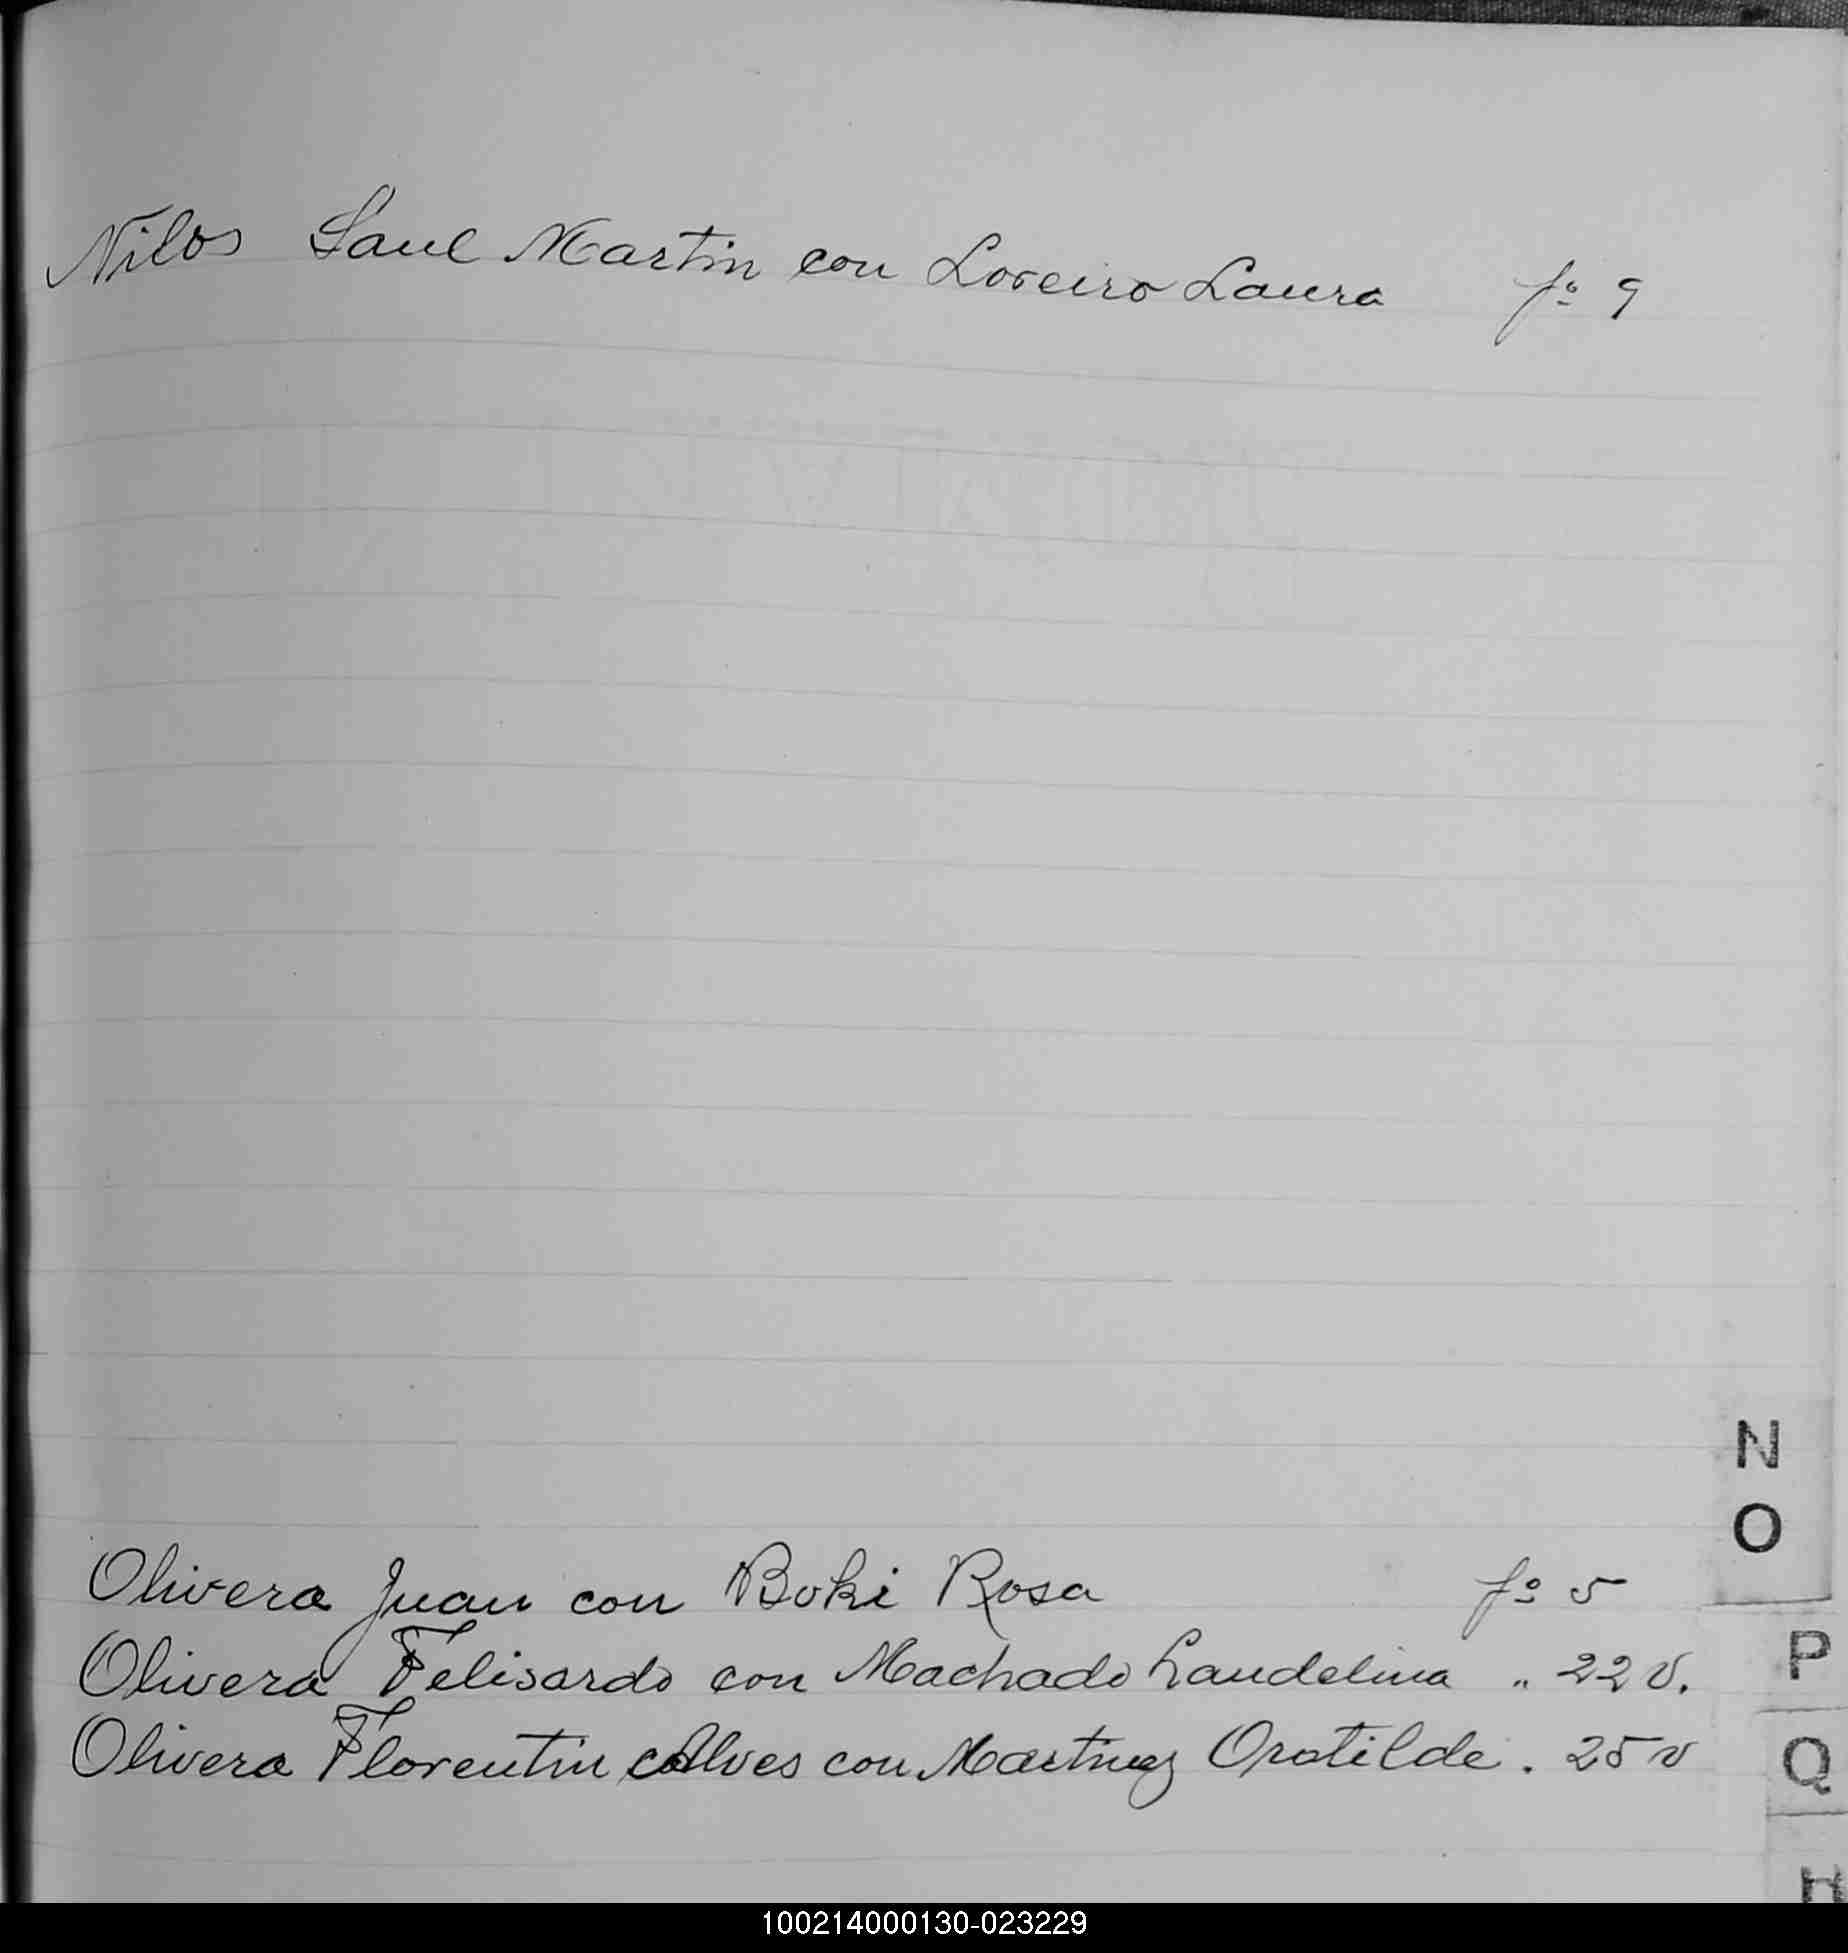 Nilos Saul Martin con Loreiro Laura fº 9
N
O
Olivera Juan con Boki Rosa fº 5
P
Olivera Felisardo con Machado Laudelina " 22 v.
Olivera Florentin Alves con Martinez Oratilde . 25 v
Q
100214000130-023229